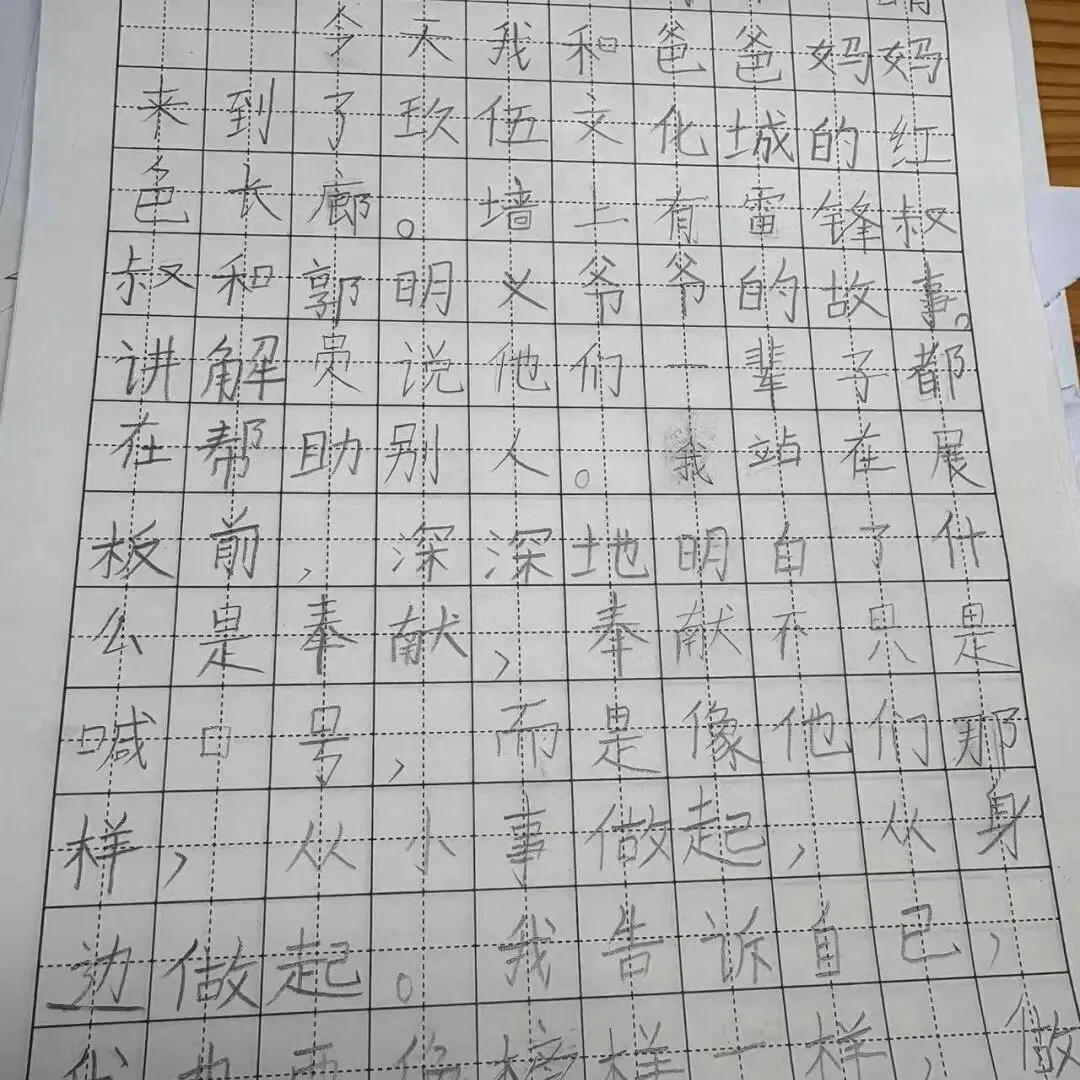 今天我和爸爸妈妈
来到了玖伍文化城的红
色长廊。墙上有雷锋叔
叔和郭明义爷爷的故事。
讲解员说他们一辈子都
在帮助别人。我站在展
板前，深深地明白了什
么是奉献，奉献不只是
喊口号，而是像他们那
样，从小事做起，从身
边做起。我告诉自己，
我也要像榜样一样，做